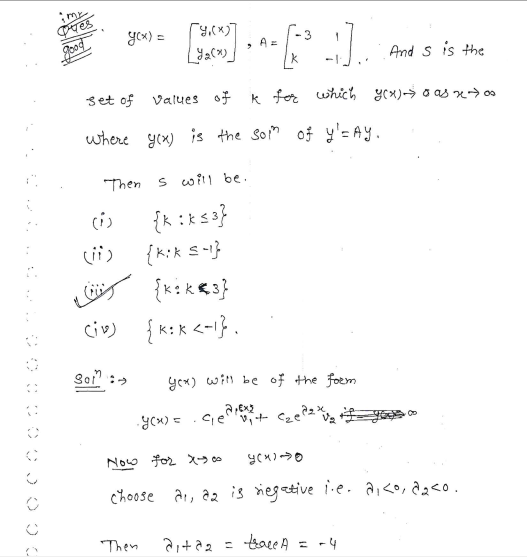 imp
Ques
good
y(x) = [y₁(x) y₂(x)] , A = [-3 1 k -1] . . And S is the
set of values of k for which y(x) → 0 as x → ∞
where y(x) is the solⁿ of y' = Ay.
Then S will be.
(i) {k : k ≤ 3}
(ii) {k : k ≤ -1}
(iii) {k : k < 3}
(iv) {k : k < -1} .
Solⁿ :→ y(x) will be of the form
y(x) = c₁ e^λ₁x v₁ + c₂ e^λ₂x v₂
Now for x → ∞ y(x) → 0
choose λ₁, λ₂ is negative i.e. λ₁<0, λ₂<0.
Then λ₁+λ₂ = trace A = -4